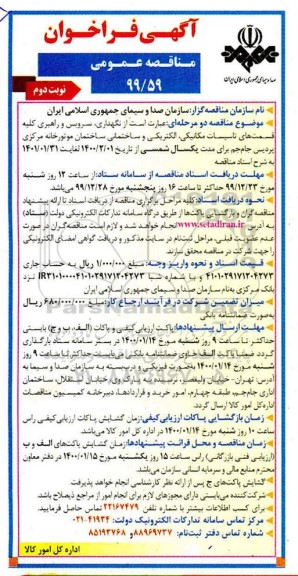 آگهی فراخوان
مناقصه عمومی
۹۹/۵۹
نوبت دوم
نام سازمان مناقصه‌گزار: سازمان صدا و سیمای جمهوری اسلامی ایران
موضوع مناقصه دو مرحله‌ای: عبارت است از نگهداری، سرویس و راهبری کلیه
قسمت‌های تاسیسات مکانیکی، الکتریکی و ساختمانی ساختمان موتورخانه مرکزی
پردیس جام‌جم برای مدت یکسال شمسی از تاریخ ۱۴۰۰/۲/۰۱ لغایت ۱۴۰۱/۰۱/۳۱
به شرح اسناد مناقصه
مهلت دریافت اسناد مناقصه از سامانه ستاد: از ساعت ۱۲ روز شنبه
مورخ ۹۹/۱۲/۲۳ حداکثر تا ساعت ۱۶ روز پنجشنبه مورخ ۹۹/۱۲/۲۸ می‌باشد.
نحوه دریافت اسناد: کلیه مراحل برگزاری مناقصه از دریافت اسناد تا ارائه پیشنهاد
مناقصه‌گران و بازگشایی پاکت‌ها از طریق درگاه سامانه تدارکات الکترونیکی دولت (ستاد) به
آدرس www.setadiran.ir انجام خواهد شد و لازم است مناقصه‌گران در صورت
عدم عضویت قبلی، مراحل ثبت‌نام در سایت مذکور و دریافت گواهی امضای الکترونیکی
را جهت شرکت در مناقصه محقق سازند.
قیمت اسناد و نحوه واریز وجه: مبلغ ۱/۰۰۰/۰۰۰ ریال به حساب جاری
۴۱۰۱۰۲۹۱۷۱۲۰۴۲۷۳ و یا شماره شبا IR۳۱۰۱۰۰۰۰۴۱۰۱۰۲۹۱۷۱۲۰۴۲۷۳ نزد
بانک مرکزی به‌نام سازمان صدا و سیمای جمهوری اسلامی ایران
میزان تضمین شرکت در فرآیند ارجاع کار: مبلغ ۶۸۰/۰۰۰/۰۰۰ ریال
به‌صورت ضمانتنامه بانکی
مهلت ارسال پیشنهادها: پاکت ارزیابی کیفی و پاکات (الف، ب و ج) بایستی
حداکثر تا ساعت ۹ روز شنبه مورخ ۱۴۰۰/۰۱/۱۴ در بستر سامانه ستاد بارگذاری
گردد ضمنا پاکت الف حاوی ضمانتنامه بانکی می‌بایست حداکثر تا ساعت ۹ روز
شنبه مورخ ۱۴۰۰/۰۱/۱۴ به صورت فیزیکی و دربسته به سازمان صدا و سیما به
آدرس: تهران - خیابان ولیعصر (عج)، خیابان جام‌جم، خیابان استقلال، ساختمان
اداری جام‌جم، طبقه چهارم، امور خرید و قراردادها، دبیرخانه کمیسیون مناقصات
اداره‌کل امور کالا ارسال گردد.
زمان بازگشایی پاکات ارزیابی کیفی: زمان گشایش پاکات ارزیابی کیفی راس
ساعت ۱۰ روز شنبه مورخ ۱۴۰۰/۰۱/۱۴ در اداره کل امور کالا
زمان مناقصه و محل قرائت پیشنهادها: زمان گشایش پاکت‌های الف و ب
(ارزیابی فنی بازرگانی) راس ساعت ۱۵ روز یکشنبه مورخ ۱۴۰۰/۰۱/۱۵ در دفتر معاون
محترم منابع مالی و سرمایه انسانی سازمان می‌باشد.
گشایش پاکت‌های ج پس از ارائه نظر کارشناسی انجام خواهد پذیرفت.
شرکت‌کننده می‌بایستی دارای مجوزهای لازم برای انجام امور از مراجع ذیصلاح باشد.
برای کسب اطلاعات بیشتر با شماره تلفن ۲۲۱۶۷۴۷۹ تماس حاصل فرمایید.
مرکز تماس سامانه تدارکات الکترونیک دولت: ۴۱۹۳۴-۰۲۱
شماره تماس دفتر ثبت‌نام: ۸۸۹۶۹۷۳۷ و ۸۵۱۹۳۷۶۸
اداره کل امور کالا